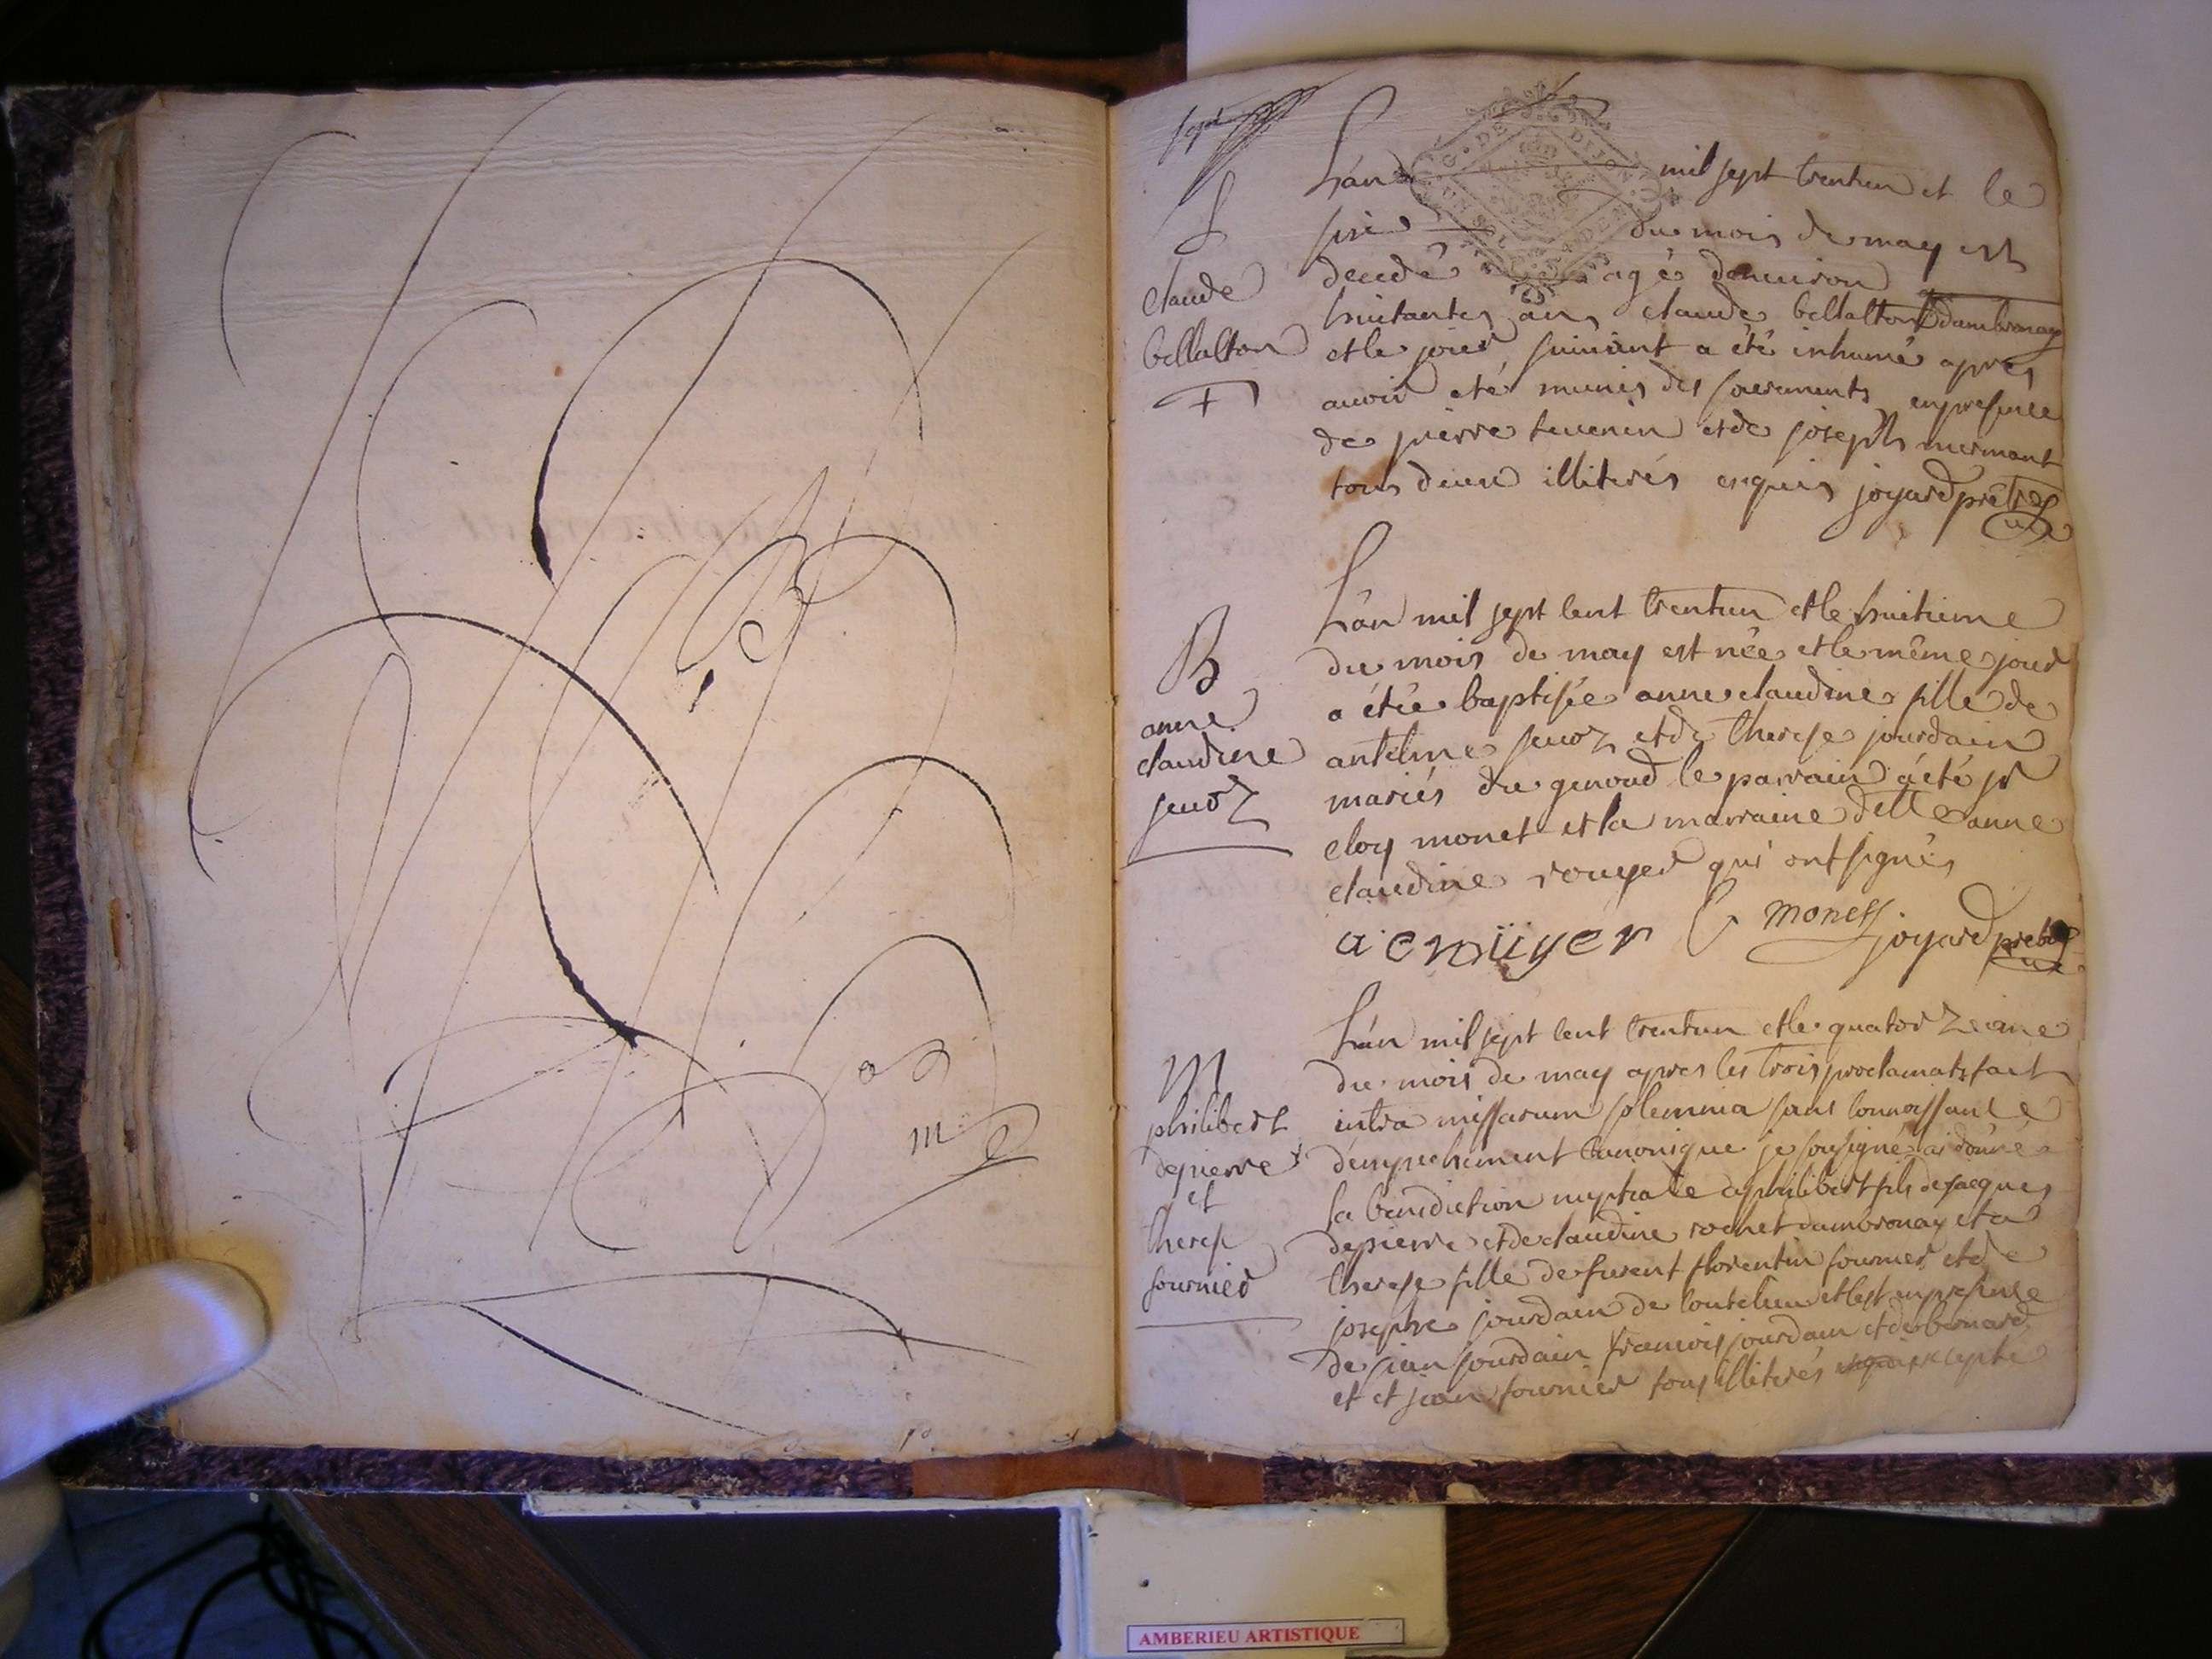 sept
S
claude
bellalton
L'an mil sept trentun et le
du mois de may est
decedé agé denuiron
huitantes ans claude bellalton dambronay
et le jour suiuant a été inhumé apres
auoir eté munis des sacrements en presence
de pierre teuenin et de joseph mermant
tous deux illiterés enquis joyard prêtre
uic
B
anne
claudine
seuoz
L'an mil sept cent trentun et le huitieme
du mois de may est née et le même jour
a étée baptisée anne claudine fille de
antelme seuoz et de therese jourdain
mariés du genoud le parrain a été sr
eloy monet et la marraine delle anne
claudine rouyer qui ont signés
a c rouyer Monet joyard prebtre
uic
M
philibert
depierre
et
therese
fournier
L'an mil sept cent trentun et le quatorzeime
du mois de may apres les trois proclamats fait
intra missarum solemnia sans connoissance
d'empechement canonique je sousigné ai donné
la benediction nuptiale a philibert fils de jacques
depierre et de claudine rochet dambronay et a
therese fille de furent florentin fournier et de
josephe jourdain de et cest en presence
de jean jourdain francois jourdain et de bernard
et et jean fournier tous illiterés
B
m
G. DE DIJON
UN S. 4 DEN
AMBERIEU ARTISTIQUE